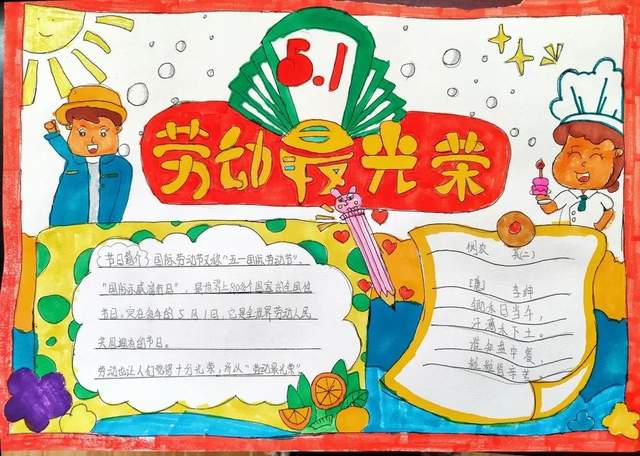 5.1
劳动最光荣
(节日简介)国际劳动节又称"五一国际劳动节"、
"国际示威游行日",是世界上80多个国家的全国性
节日。定在每年的5月1日。它是全世界劳动人民
共同拥有的节日。
劳动也让人们觉得十分光荣,所以"劳动最光荣"
悯农 其(二)
[唐] 李绅
锄禾日当午,
汗滴禾下土。
谁知盘中餐,
粒粒皆辛苦。